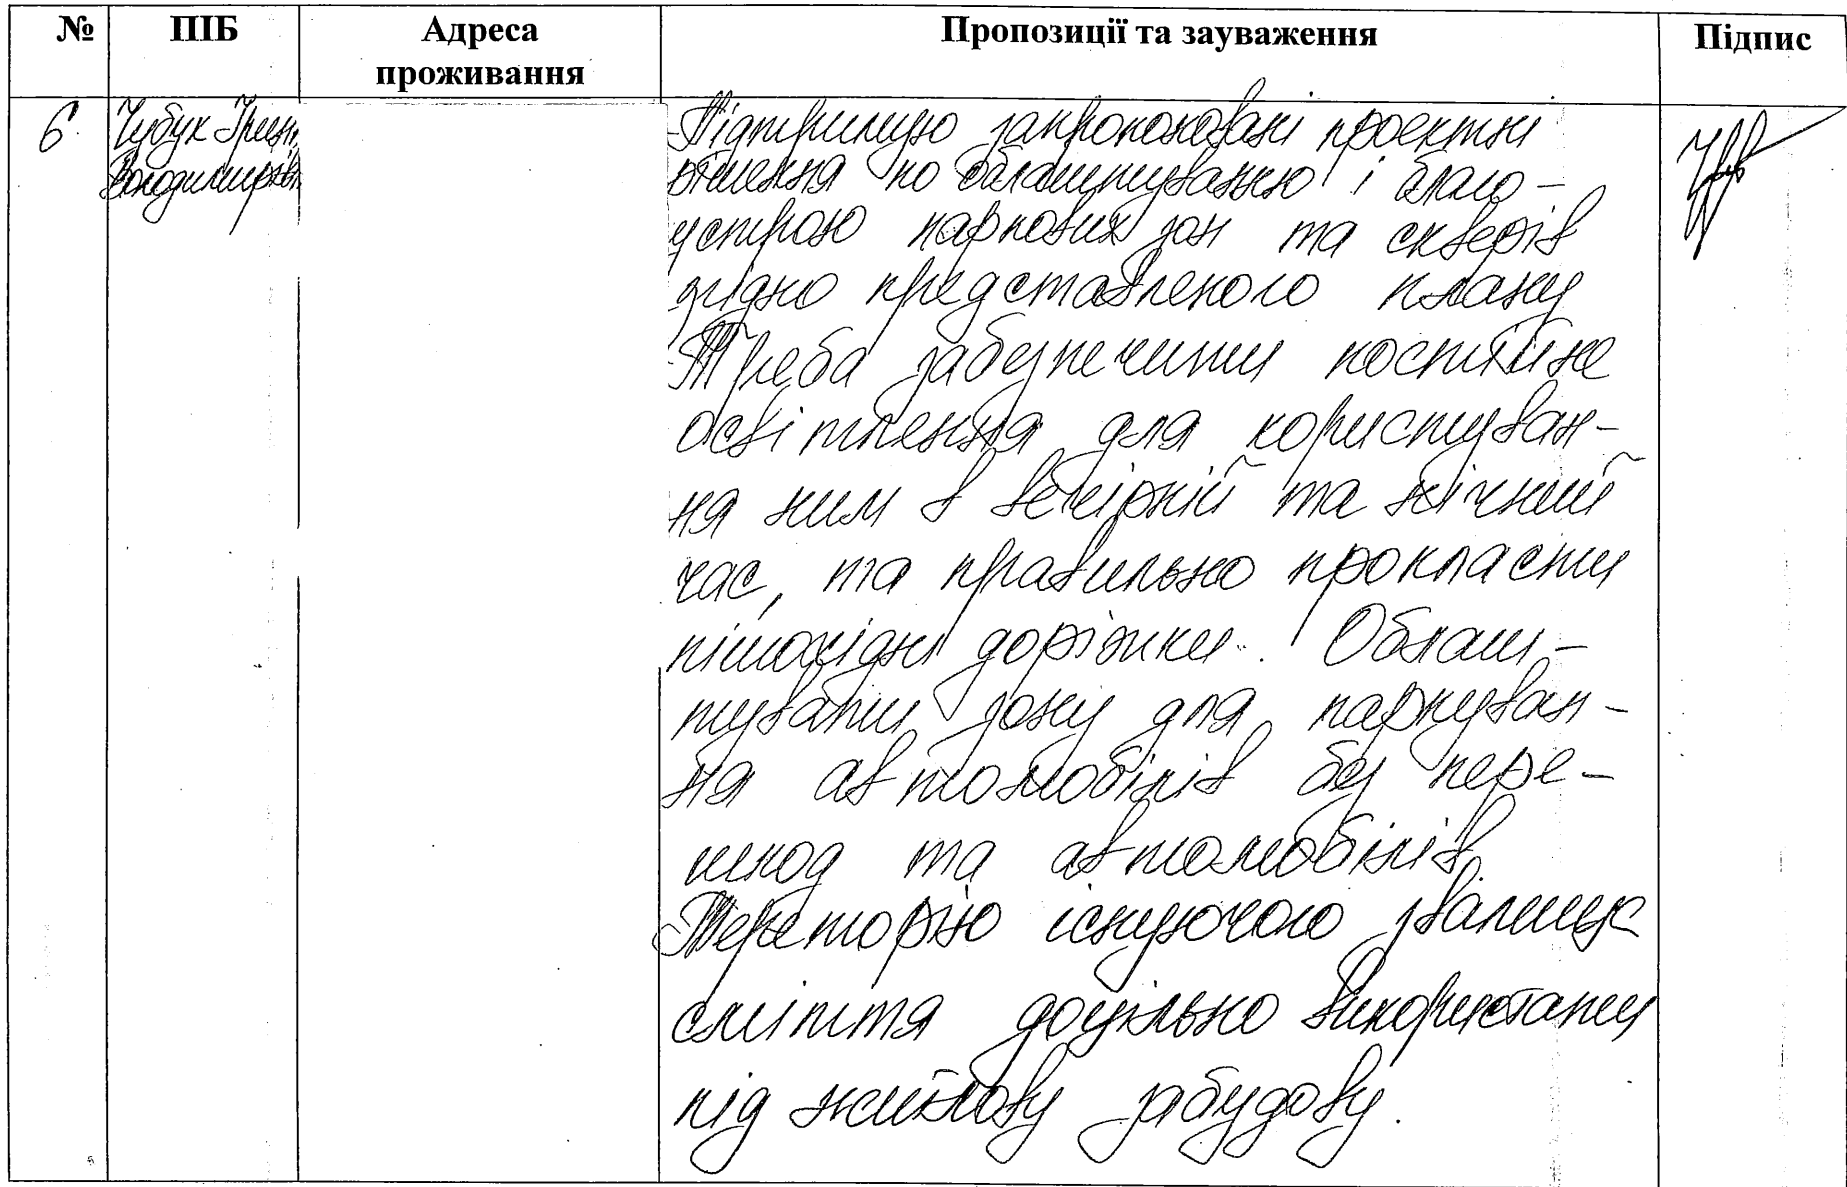 № ПІБ Адреса проживання Пропозиції та зауваження Підпис
6. Чубук Ірин
Володимирівн
Підтримую запропоновані проектні
рішення по облаштуванню і благо-
устрою паркових зон та скверів
згідно представленого плану
Треба забезпечити постійне
освітлення для користуван-
ня ним в вечірній та нічний
час, та правильно прокласти
пішохідні доріжки. Облаш-
тувати зону для паркуван-
ня автомобілів бу пере-
шкод та автомобілів.
Територію існуючого звалища
сміття доцільно використати
під житлову забудову.